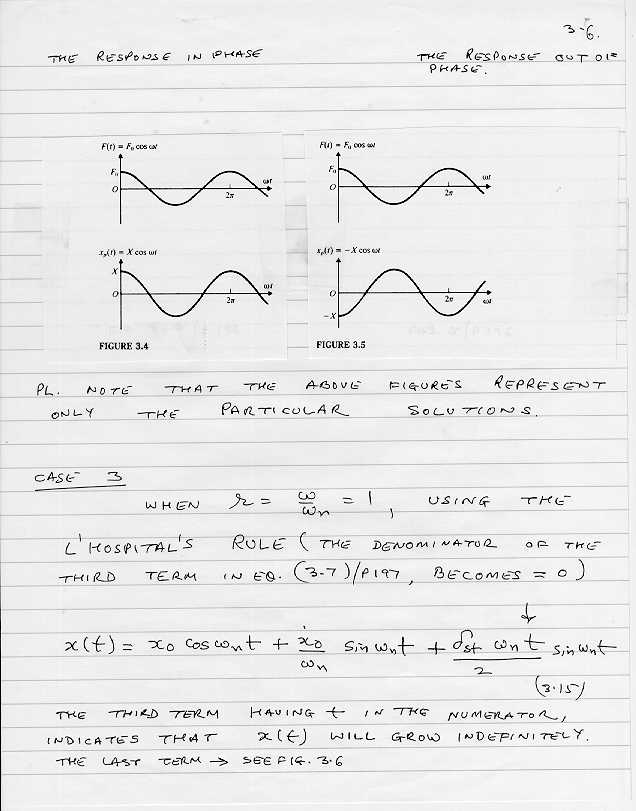 3-6.
THE RESPONSE IN PHASE
THE RESPONSE OUT OF
PHASE.
F(t) = F₀ cos ωt
F₀
O
2π
ωt
x_p(t) = X cos ωt
X
O
2π
ωt
FIGURE 3.4
F(t) = F₀ cos ωt
F₀
O
2π
ωt
x_p(t) = −X cos ωt
O
−X
2π
ωt
FIGURE 3.5
PL. NOTE THAT THE ABOVE FIGURES REPRESENT
ONLY THE PARTICULAR SOLUTIONS.
CASE 3
WHEN r = ω/ωn = 1, USING THE
L'HOSPITAL'S RULE (THE DENOMINATOR OF THE
THIRD TERM IN EQ. (3-7)/P197, BECOMES = 0)
x(t) = x₀ cos ωnt + ẋ₀/ωn sin ωnt + δst ωn t/2 sin ωnt
(3.15)
THE THIRD TERM HAVING t IN THE NUMERATOR,
INDICATES THAT x(t) WILL GROW INDEFINITELY.
THE LAST TERM → SEE FIG. 3.6